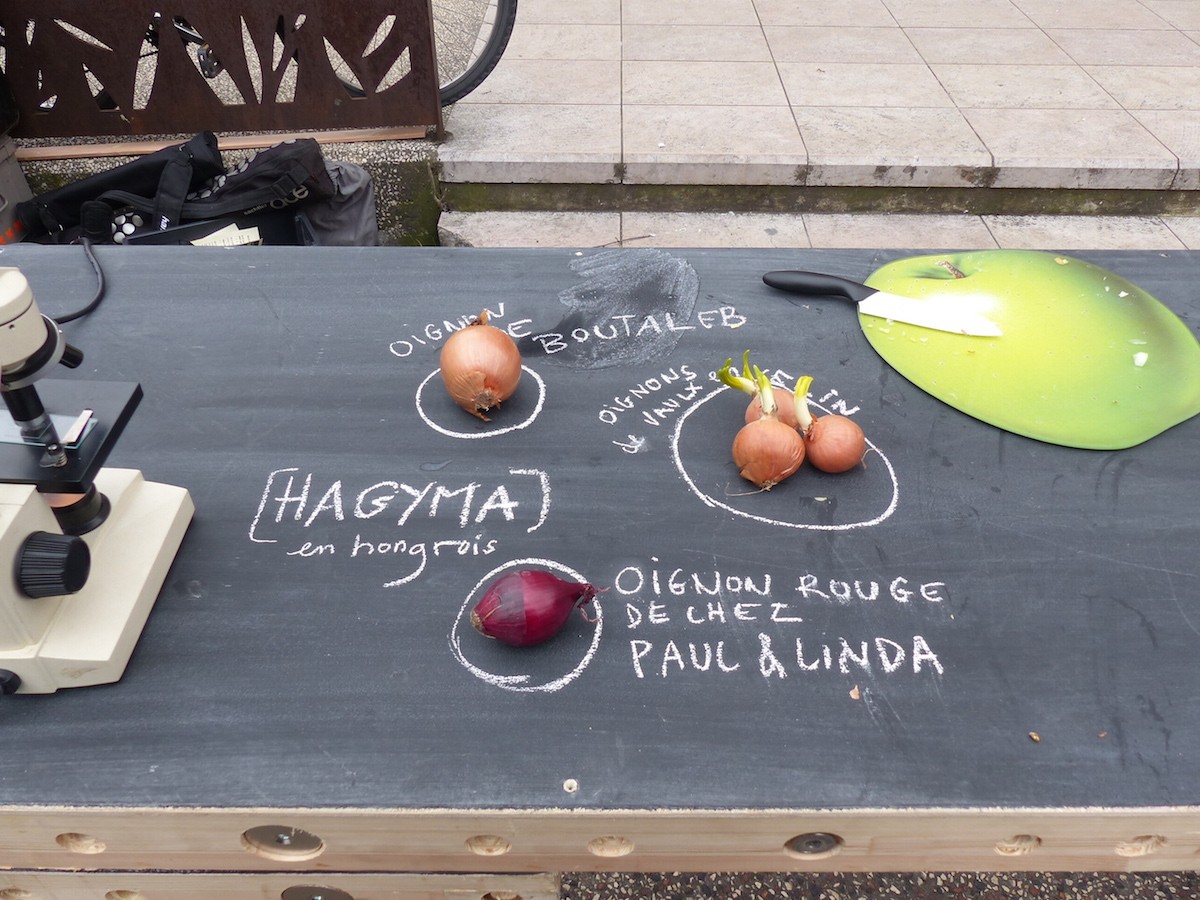 OIGNON
DE BOUTALEB
OIGNONS
de VAULX en
[HAGYMA]
en hongrois
OIGNON ROUGE
DE CHEZ
PAUL & LINDA